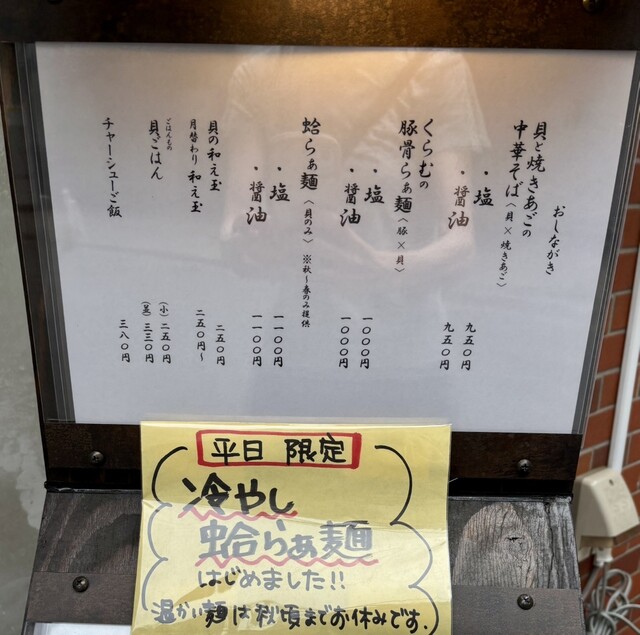 おしながき
貝と焼きあごの
中華そば〈貝×焼きあご〉
・塩 九五〇円
・醤油 九五〇円
くらむの
豚骨らぁ麺〈豚×貝〉
・塩 一〇〇〇円
・醤油 一〇〇〇円
蛤らぁ麺〈貝のみ〉※秋〜春のみ提供
・塩 一一〇〇円
・醤油 一一〇〇円
貝の和え玉 二五〇円
月替わり 和え玉 二五〇円〜
ごはんもの
貝ごはん (小)二五〇円
(並)三三〇円
チャーシューご飯 三八〇円
平日 限定
冷やし
蛤らぁ麺
はじめました!!
温かい麺は秋頃までお休みです.